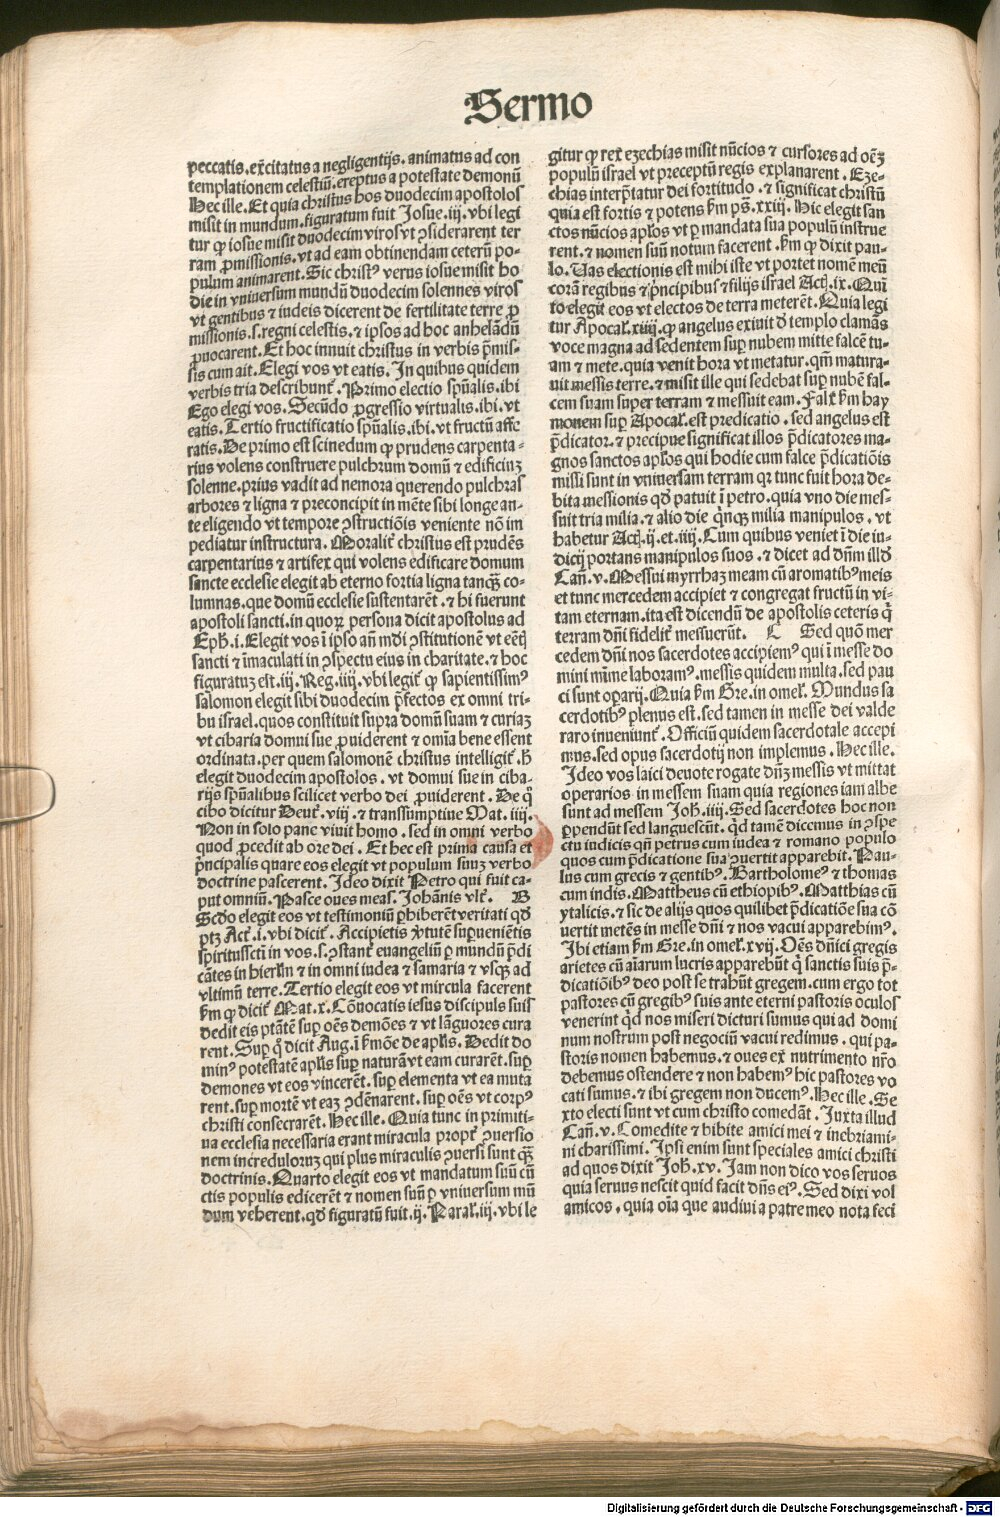 Sermo
peccatis.excitatus a negligentijs.animatus ad con
templationem celestiū.ereptus a potestate demonū
Hec ille.Et quia christus hos duodecim apostolos
misit in mundum.figuratum fuit Josue.iij.vbi legi
tur ꝙ iosue misit duodecim viros vt ꝯsiderarent ter
ram ꝓmissionis.vt ad eam obtinendam ceterū po-
pulum animarent.Sic christꝰ verus iosue misit ho
die in vniuersum mundū duodecim solennes viros
vt gentibus ⁊ iudeis dicerent de fertilitate terre ꝓ
missionis.s.regni celestis.⁊ ipsos ad hoc anhelādū
ꝓuocarent.Et hoc innuit christus in verbis p̄mis-
sis cum ait.Elegi vos vt eatis.In quibus quidem
verbis tria describunt᷑.Primo electio spūalis.ibi
Ego elegi vos.Secūdo ꝓgressio virtualis.ibi.vt
eatis.Tertio fructificatio spūalis.ibi.vt fructū affe
ratis.De primo est scinedum ꝙ prudens carpenta-
rius volens construere pulchrum domū ⁊ edificiuꝫ
solenne.prius vadit ad nemora querendo pulchras
arbores ⁊ ligna ⁊ preconcipit in mēte sibi longe an-
te eligendo vt tempore ꝯstructiōis veniente nō im
pediatur instructura.Moralit᷑ christus est prudēs
carpentarius ⁊ artifex qui volens edificare domum
sancte ecclesie elegit ab eterno fortia ligna tanqꝫ co-
lumnas.que domū ecclesie sustentarēt.⁊ hi fuerunt
apostoli sancti.in quoꝝ persona dicit apostolus ad
Eph.i.Elegit vos ī ipso añ mūdi ꝯstitutionē vt eētꝭ
sancti ⁊ īmaculati in ꝯspectu eius in charitate.⁊ hoc
figuratuꝫ est.iij.Reg.iiij.vbi legit᷑ ꝙ sapientissimꝰ
salomon elegit sibi duodecim p̄fectos ex omni tri-
bu israel.quos constituit supra domū suam ⁊ curiaꝫ
vt cibaria domui sue ꝓuiderent ⁊ omīa bene essent
ordinata.per quem salomonē christus intelligit᷑.ħ
elegit duodecim apostolos.vt domui sue in ciba-
rijs spūalibus scilicet verbo dei ꝓuiderent.De q̊
cibo dicitur Deut᷑.viij.⁊ transsumptiue Mat.iiij.
Non in solo pane viuit homo.sed in omni verbo
quod ꝓcedit ab ore dei.Et hec est prima causa et
pͥncipalis quare eos elegit vt populum suuꝫ verbo
doctrine pascerent.Ideo dixit Petro qui fuit ca-
put omniū.Pasce oues meas.Johānis vlt᷑. B
Scďo elegit eos vt testimoniū ꝑhiberēt veritati qď
ptꝫ Act᷑.i.vbi dicit᷑.Accipietis v̓tutē suꝑuenientis
spiritussctī in vos.⁊.ꝯstant᷑ euangeliū ꝑ mundū p̄di
cātes in hierlm ⁊ in omni iudea ⁊ samaria ⁊ vsqꝫ ad
vltimū terre.Tertio elegit eos vt mircula facerent
ẜm ꝙ dicit᷑ Mat.x.Cōuocatis iesus discipuls suis
dedit eis ptātē suꝑ oēs demōes ⁊ vt lāguores cura
rent.Suꝑ qͦ dicit Aug.ī ẜmōe de apłis.Dedit do
minꝰ potestatē apłis suꝑ naturā vt eam curarēt.suꝑ
demones vt eos vincerēt.suꝑ elementa vt ea muta
rent.suꝑ mortē vt eaꝫ ꝯdēnarent.suꝑ oēs vt corpꝰ
christi consecrarēt.Hec ille.Quia tunc in primiti-
ua ecclesia necessaria erant miracula propt᷑ ꝯuersio
nem increduloruꝫ qui plus miraculis ꝯuersi sunt qꝫ
doctrinis.Quarto elegit eos vt mandatum suū cū
ctis populis edicerēt ⁊ nomen suū ꝑ vniuersum mū
dum veherent.qď figuratū fuit.ij.Paral̓.iij.vbi le
gitur ꝙ rex ezechias misit nūcios ⁊ cursores ad oēꝫ
populū israel vt preceptū regis explanarent.Eze-
chias interp̄tatur dei fortitudo.⁊ significat christū
quia est fortis ⁊ potens ẜm ps̄.xxiij.Hic elegit san
ctos nūcios apłos vt ꝑ mandata sua populū instrue
rent.⁊ nomen suū notum facerent.ẜm ꝙ dixit pau-
lo.Uas electionis est mihi iste vt portet nomē meū
corā regibus ⁊ pͥncipibus ⁊ filijs israel Actꝭ.ix.Quī
to elegit eos vt electos de terra meterēt.Quia legi
tur Apocal̓.xiiij.ꝙ angelus exiuit ď templo clamās
voce magna ad sedentem suꝑ nubem mitte falcē tu-
am ⁊ mete.quia venit hora vt metatur.qm̄ matura-
uit messis terre.⁊ misit ille qui sedebat suꝑ nubē fal-
cem suam super terram ⁊ messuit eam.Falx ẜm hay
monem suꝑ Apocal̓.est predicatio.sed angelus est
p̄dicator.⁊ precipue significat illos p̄dicatores ma-
gnos sanctos apłos qui hodie cum falce p̄dicatiōis
missi sunt in vniuersam terram qꝛ tunc fuit hora de-
bita messionis qď patuit ī petro.quia vno die mes-
suit tria milia.⁊ alio die qͥnqꝫ milia manipulos.vt
habetur Actꝭ.ij.et.iiij.Cum quibus veniet ī die iu-
dicij portans manipulos suos.⁊ dicet ad dn̄m illď
Cañ.v.Messui myrrhaꝫ meam cū aromatibꝰ meis
et tunc mercedem accipiet ⁊ congregat fructū in vi-
tam eternam.ita est dicendū de apostolis ceteris qͥ
terram dn̄i fidelit᷑ messuerūt. C Sed quō mer
cedem dn̄i nos sacerdotes accipiemꝰ qui ī messe do
mini mīme laboramꝰ.messis quidem multa.sed pau
ci sunt oꝑarij.Quia ẜm Gre.in omel̓.Mundus sa
cerdotibꝰ plenus est.sed tamen in messe dei valde
raro inueniunt᷑.Officiū quidem sacerdotale accepi
mus.sed opus sacerdotij non implemus.Hec ille.
Ideo vos laici deuote rogate dn̄ꝫ messis vt mittat
operarios in messem suam quia regiones iam albe
sunt ad messem Joh.iiij.Sed sacerdotes hoc non
ꝑpendūt sed languescūt.qͥd tamē dicemus in ꝯspe
ctu iudicis qn̄ petrus cum iudea ⁊ romano populo
quos cum p̄dicatione sua ꝯuertit apparebit.Pau-
lus cum grecis ⁊ gentibꝰ.Bartholomeꝰ ⁊ thomas
cum indis.Mattheus cū ethiopibꝰ.Matthias cū
ytalicis.⁊ sic de alijs quos quilibet p̄dicatiōe sua cō
uertit metēs in messe dn̄i ⁊ nos vacui apparebimꝰ.
Ibi etiam ẜm Gre.in omel̓.xvij.Oēs dn̄ici gregis
arietes cū aīarum lucris apparebūt qͥ sanctis suis p̄-
dicatiōibꝰ deo post se trahūt gregem.cum ergo tot
pastores cū gregibꝰ suis ante eterni pastoris oculos
venerint qͥd nos miseri dicturi sumus qui ad domi
num nostrum post negociū vacui redimus.qui pa-
storis nomen habemus.⁊ oues ex nutrimento nr̄o
debemus ostendere ⁊ non habemꝰ hic pastores vo
cati sumus.⁊ ibi gregem non ducemꝰ.Hec ille.Se
xto electi sunt vt cum christo comedāt.Juxta illud
Cañ.v.Comedite ⁊ bibite amici mei ⁊ inebriami-
ni charissimi.Ipsi enim sunt speciales amici christi
ad quos dixit Joh.xv.Iam non dico vos seruos
quia seruus nescit quid facit dn̄s eiꝰ.Sed dixi vos
amicos.quia oīa que audiui a patre meo nota feci
Digitalisierung gefördert durch die Deutsche Forschungsgemeinschaft - DFG